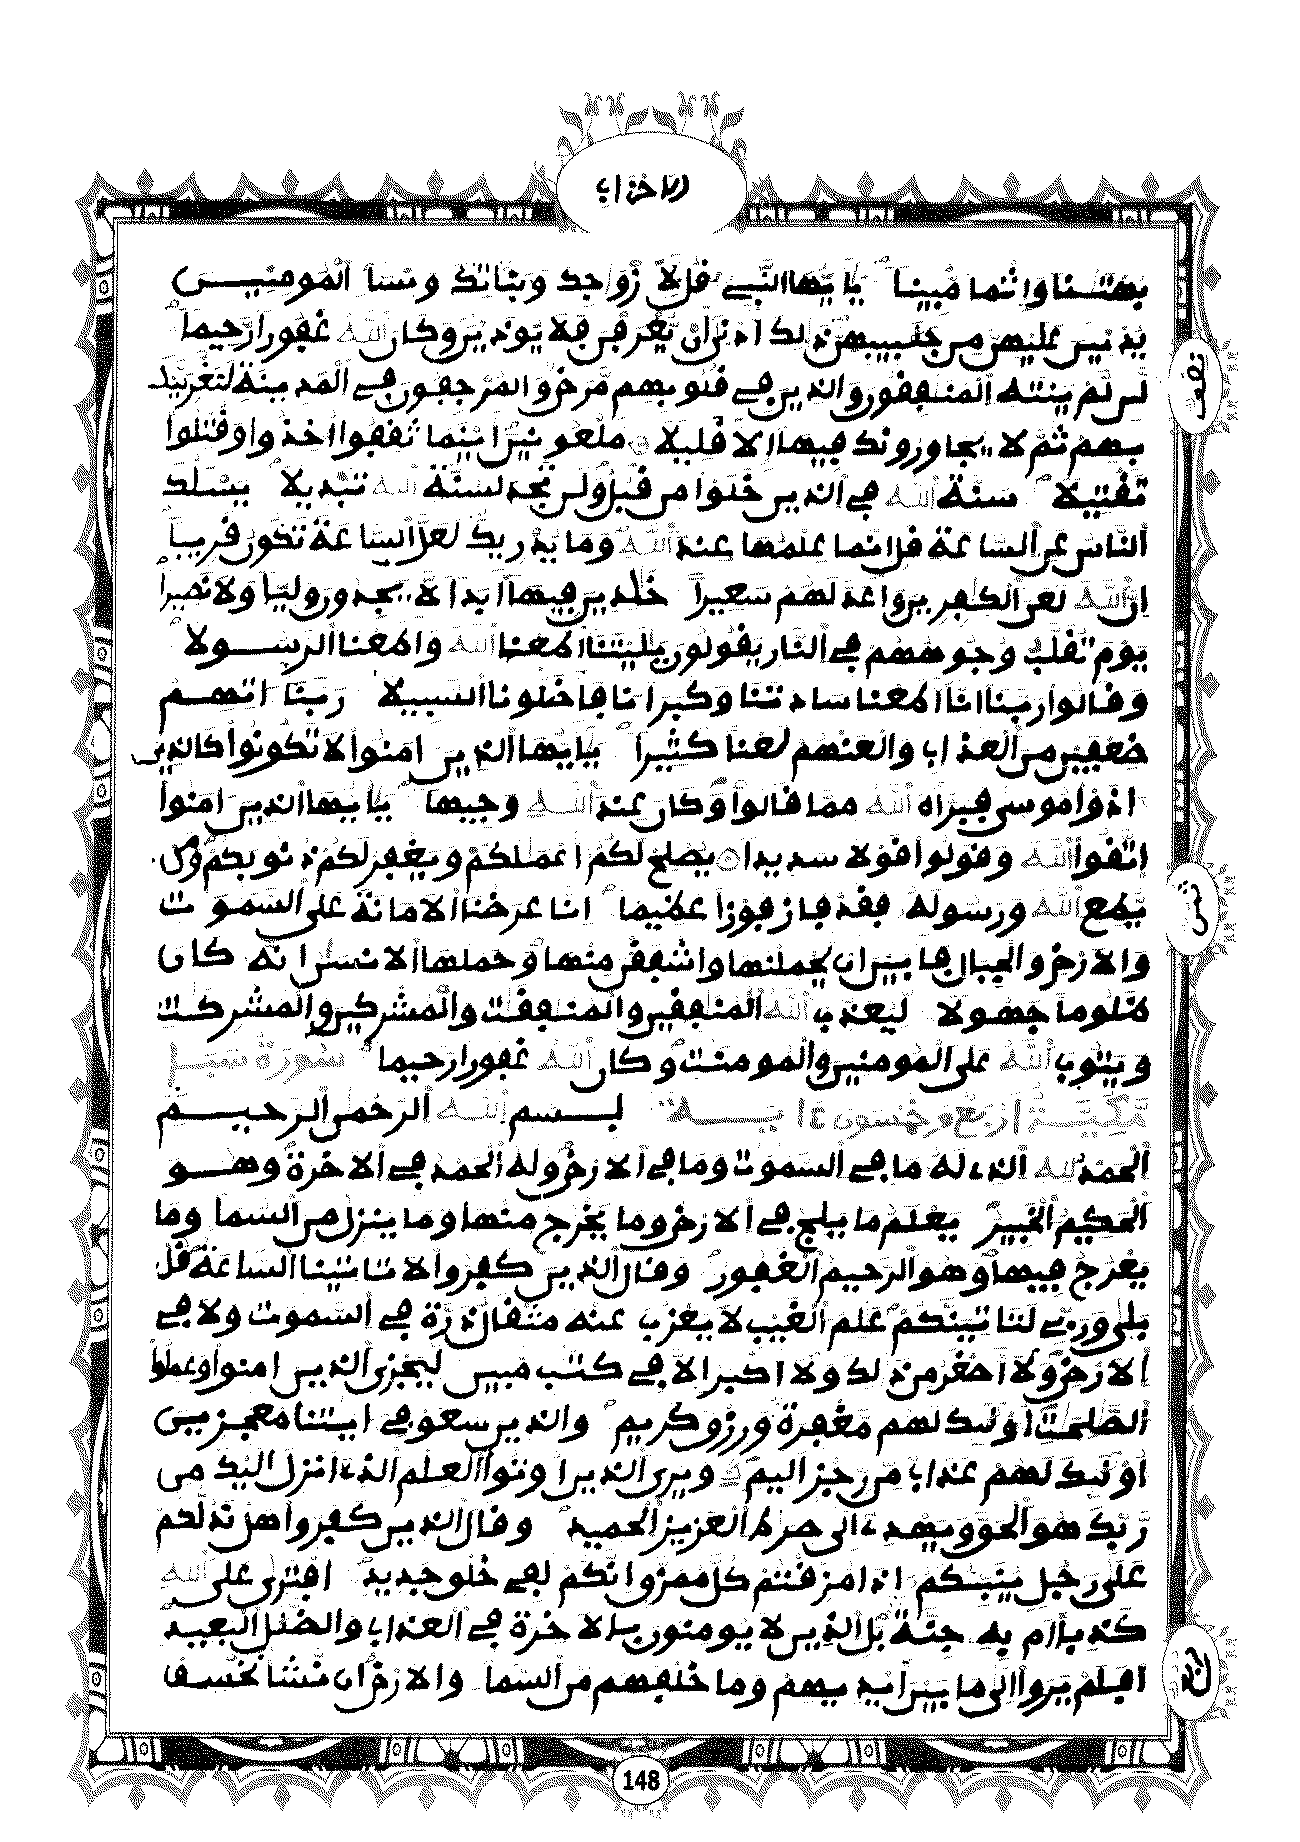 الاحزاب
بهتنا واثما مبينا يايها النبىء قل لازواجك وبناتك ونسا المومنين
يدنين عليهن من جلبيبهن ذلك ادنى ان يعرفن فلا يوذين وكان الله غفورا رحيما
لئن لم ينته المنفقون والذين في قلوبهم مرض والمرجفون في المدينة لنغرينك
بهم ثم لا يجاورونك فيها الا قليلا ملعونين اينما ثقفوا اخذوا وقتلوا
تقتيلا سنة الله في الذين خلوا من قبل ولن تجد لسنة الله تبديلا يسلك
الناس عن الساعة قل انما علمها عند الله وما يدريك لعل الساعة تكون قريبا
ان الله لعن الكفرين واعد لهم سعيرا خلدين فيها ابدا لا يجدون وليا ولا نصيرا
يوم تقلب وجوههم في النار يقولون يليتنا اطعنا الله واطعنا الرسولا
وقالوا ربنا انا اطعنا سادتنا وكبرانا فاضلونا السبيلا ربنا اتهم
ضعفين من العذاب والعنهم لعنا كثيرا يايها الذين امنوا لا تكونوا كالذين
اذوا موسى فبراه الله مما قالوا وكان عند الله وجيها يايها الذين امنوا
اتقوا الله وقولوا قولا سديدا يصلح لكم اعملكم ويغفر لكم ذنوبكم ومن
يطع الله ورسوله فقد فاز فوزا عظيما انا عرضنا الامانة على السموت
والارض والجبال فابين ان يحملنها واشفقن منها وحملها الانسن انه كان
ظلوما جهولا ليعذب الله المنفقين والمنفقت والمشركين والمشركت
ويتوب الله على المومنين والمومنت وكان الله غفورا رحيما سورة سبإ
مكية اربع وخمسون ءاية بسم الله الرحمن الرحيم
الحمد لله الذي له ما في السموت وما في الارض وله الحمد في الاخرة وهو
الحكيم الخبير يعلم ما يلج في الارض وما يخرج منها وما ينزل من السما وما
يعرج فيها وهو الرحيم الغفور وقال الذين كفروا لا تاتينا الساعة قل
بلى وربي لتاتينكم علم الغيب لا يعزب عنه مثقال ذرة في السموت ولا في
الارض ولا اصغر من ذلك ولا اكبر الا في كتب مبين ليجزي الذين امنوا وعملوا
الصلحت اولك لهم مغفرة ورزق كريم والذين سعو في ايتنا معجزين
اولك لهم عذاب من رجز اليم ويرى الذين اوتوا العلم الذي انزل اليك من
ربك هو الحق ويهدي الى صرط العزيز الحميد وقال الذين كفروا هل ندلكم
على رجل ينبكم اذا مزقتم كل ممزق انكم لفي خلق جديد افترى على الله
كذبا ام به جنة بل الذين لا يومنون بالاخرة في العذاب والضلل البعيد
افلم يروا الى ما بين ايديهم وما خلفهم من السما والارض ان نشا نخسف
نصف
ثمن
148